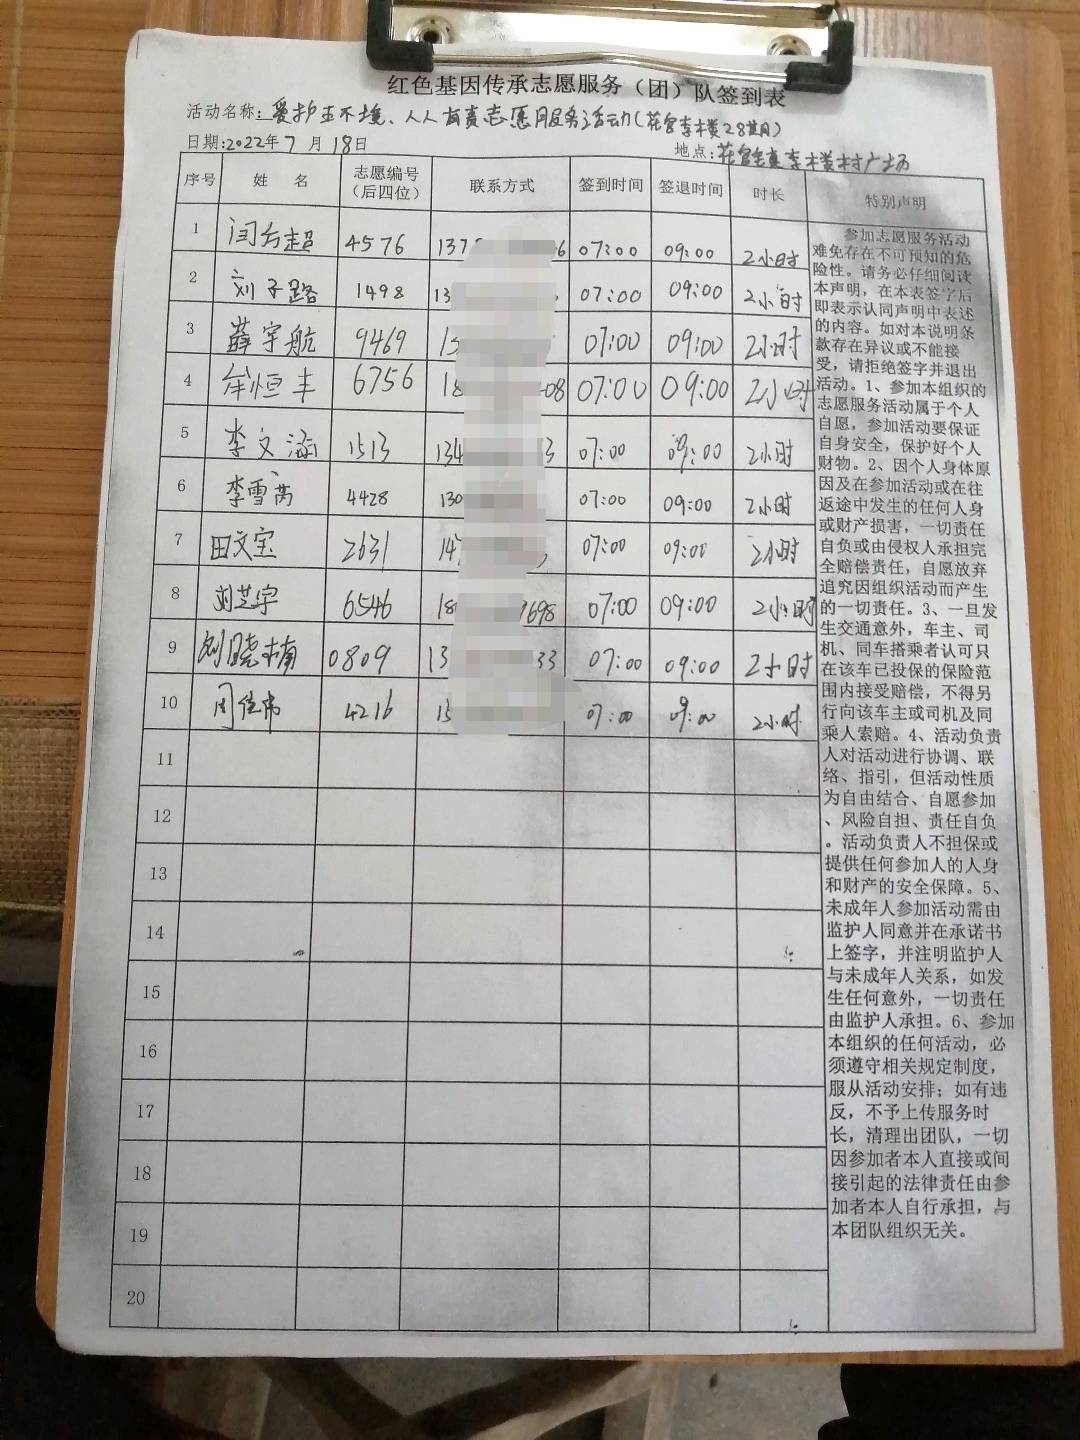 红色基因传承志愿服务（团）队签到表
活动名称：爱护环境、人人有责志愿服务活动（花官李楼28期）
日期：2022年7月18日 地点：花官镇李楼村广场
序号 姓名 志愿编号（后四位） 联系方式 签到时间 签退时间 时长 特别声明
1 闫台超 4576 137 6 07:00 09:00 2小时
2 刘子路 1498 13 07:00 09:00 2小时
3 薛宇航 9469 13 07:00 09:00 2小时
4 牟恒丰 6756 18 08 07:00 09:00 2小时
5 李文涵 1513 134 3 07:00 09:00 2小时
6 李雪芮 4428 130 07:00 09:00 2小时
7 田文宝 2631 14 07:00 09:00 2小时
8 刘芝宇 6546 18 9698 07:00 09:00 2小时
9 刘晓楠 0809 13 33 07:00 09:00 2小时
10 周佳伟 4216 15 07:00 09:00 2小时
11
12
13
14
15
16
17
18
19
20
参加志愿服务活动
难免存在不可预知的危
险性。请务必仔细阅读
本声明，在本表签字后
即表示认同声明中表述
的内容。如对本说明条
款存在异议或不能接
受，请拒绝签字并退出
活动。1、参加本组织的
志愿服务活动属于个人
自愿，参加活动要保证
自身安全，保护好个人
财物。2、因个人身体原
因及在参加活动或在往
返途中发生的任何人身
或财产损害，一切责任
自负或由侵权人承担完
全赔偿责任，自愿放弃
追究因组织活动而产生
的一切责任。3、一旦发
生交通意外，车主、司
机、同车搭乘者认可只
在该车已投保的保险范
围内接受赔偿，不得另
行向该车主或司机及同
乘人索赔。4、活动负责
人对活动进行协调、联
络、指引，但活动性质
为自由结合、自愿参加
、风险自担、责任自负
。活动负责人不担保或
提供任何参加人的人身
和财产的安全保障。5、
未成年人参加活动需由
监护人同意并在承诺书
上签字，并注明监护人
与未成年人关系，如发
生任何意外，一切责任
由监护人承担。6、参加
本组织的任何活动，必
须遵守相关规定制度，
服从活动安排；如有违
反，不予上传服务时
长，清理出团队，一切
因参加者本人直接或间
接引起的法律责任由参
加者本人自行承担，与
本团队组织无关。